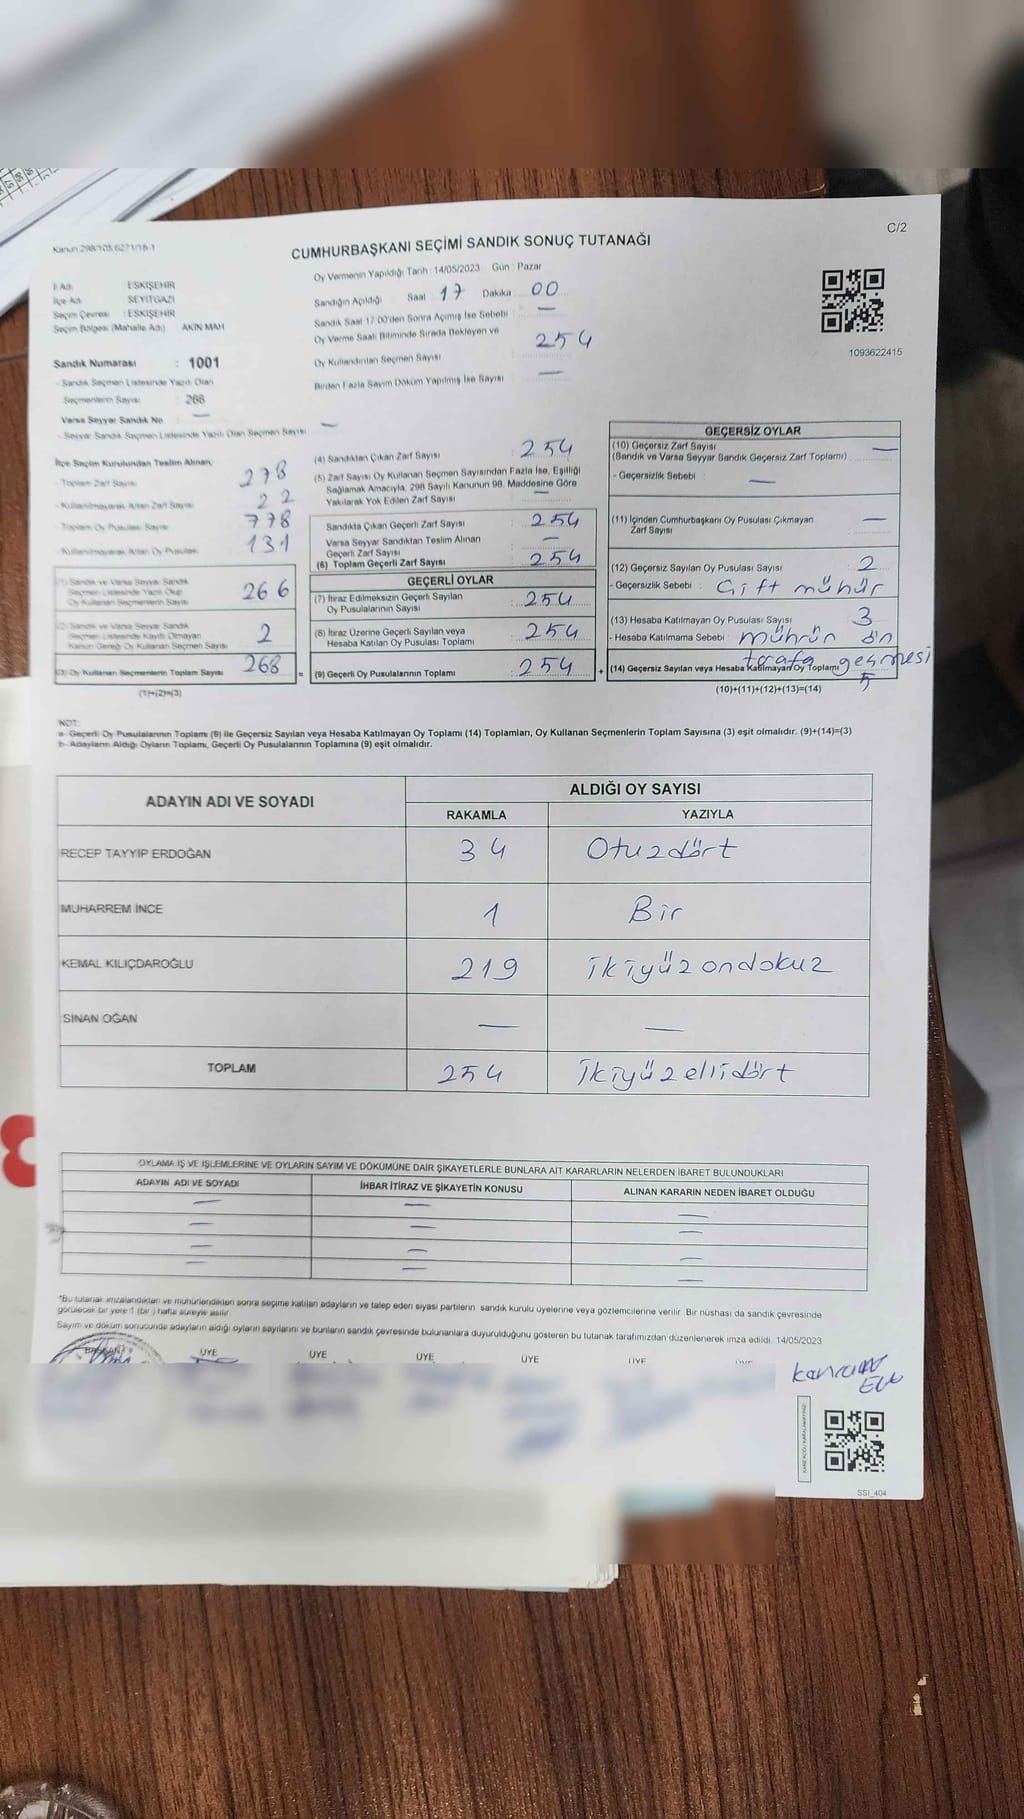 Kanun:298/105,6271/18-1
C/2
CUMHURBAŞKANI SEÇİMİ SANDIK SONUÇ TUTANAĞI
İl Adı : ESKİŞEHİR
İlçe Adı : SEYİTGAZİ
Seçim Çevresi : ESKİŞEHİR
Seçim Bölgesi (Mahalle Adı) AKIN MAH
Sandık Numarası : 1001
- Sandık Seçmen Listesinde Yazılı Olan
Seçmenlerin Sayısı : 266
Varsa Seyyar Sandık No : —
- Seyyar Sandık Seçmen Listesinde Yazılı Olan Seçmen Sayısı —
Oy Vermenin Yapıldığı Tarih : 14/05/2023 Gün : Pazar
Sandığın Açıldığı Saat 17 Dakika 00
Sandık Saat 17:00'den Sonra Açılmış İse Sebebi : —
Oy Verme Saati Bitiminde Sırada Bekleyen ve
Oy Kullandırılan Seçmen Sayısı : 254
Birden Fazla Sayım Döküm Yapılmış İse Sayısı : —
1093622415
İlçe Seçim Kurulundan Teslim Alınan;
- Toplam Zarf Sayısı 278
- Kullanılmayarak Artan Zarf Sayısı 22
- Toplam Oy Pusulası Sayısı 778
- Kullanılmayarak Artan Oy Pusulası 131
(1) Sandık ve Varsa Seyyar Sandık
Seçmen Listesinde Yazılı Olup
Oy Kullanan Seçmenlerin Sayısı 266
(2) Sandık ve Varsa Seyyar Sandık
Seçmen Listesinde Kayıtlı Olmayan
Kanun Gereği Oy Kullanan Seçmen Sayısı 2
(3) Oy Kullanan Seçmenlerin Toplam Sayısı 268 =
(1)+(2)=(3)
(4) Sandıktan Çıkan Zarf Sayısı : 254
(5) Zarf Sayısı Oy Kullanan Seçmen Sayısından Fazla İse, Eşitliği
Sağlamak Amacıyla, 298 Sayılı Kanunun 98. Maddesine Göre
Yakılarak Yok Edilen Zarf Sayısı : —
Sandıkta Çıkan Geçerli Zarf Sayısı : 254
Varsa Seyyar Sandıktan Teslim Alınan
Geçerli Zarf Sayısı : —
(6) Toplam Geçerli Zarf Sayısı : 254
GEÇERLİ OYLAR
(7) İtiraz Edilmeksizin Geçerli Sayılan
Oy Pusulalarının Sayısı : 254
(8) İtiraz Üzerine Geçerli Sayılan veya
Hesaba Katılan Oy Pusulası Toplamı : 254
(9) Geçerli Oy Pusulalarının Toplamı : 254 +
GEÇERSİZ OYLAR
(10) Geçersiz Zarf Sayısı
(Sandık ve Varsa Seyyar Sandık Geçersiz Zarf Toplamı) : —
- Geçersizlik Sebebi : —
(11) İçinden Cumhurbaşkanı Oy Pusulası Çıkmayan
Zarf Sayısı : —
(12) Geçersiz Sayılan Oy Pusulası Sayısı : 2
- Geçersizlik Sebebi : Çift mühür
(13) Hesaba Katılmayan Oy Pusulası Sayısı : 3
- Hesaba Katılmama Sebebi : mührün ön
tarafa geçmesi
(14) Geçersiz Sayılan veya Hesaba Katılmayan Oy Toplamı : 5
(10)+(11)+(12)+(13)=(14)
NOT:
a- Geçerli Oy Pusulalarının Toplamı (9) ile Geçersiz Sayılan veya Hesaba Katılmayan Oy Toplamı (14) Toplamları, Oy Kullanan Seçmenlerin Toplam Sayısına (3) eşit olmalıdır. (9)+(14)=(3)
b- Adayların Aldığı Oyların Toplamı, Geçerli Oy Pusulalarının Toplamına (9) eşit olmalıdır.
ADAYIN ADI VE SOYADI ALDIĞI OY SAYISI
RAKAMLA YAZIYLA
RECEP TAYYİP ERDOĞAN 34 Otuzdört
MUHARREM İNCE 1 Bir
KEMAL KILIÇDAROĞLU 219 ikiyüzondokuz
SİNAN OĞAN — —
TOPLAM 254 ikiyüzellidört
OYLAMA İŞ VE İŞLEMLERİNE VE OYLARIN SAYIM VE DÖKÜMÜNE DAİR ŞİKAYETLERLE BUNLARA AİT KARARLARIN NELERDEN İBARET BULUNDUKLARI
ADAYIN ADI VE SOYADI İHBAR İTİRAZ VE ŞİKAYETİN KONUSU ALINAN KARARIN NEDEN İBARET OLDUĞU
— — —
— — —
— — —
— — —
*Bu tutanak imzalandıktan ve mühürlendikten sonra seçime katılan adayların ve talep eden siyasi partilerin sandık kurulu üyelerine veya gözlemcilerine verilir. Bir nüshası da sandık çevresinde
görülecek bir yere 1 (bir ) hafta süreyle asılır.
Sayım ve döküm sonucunda adayların aldığı oyların sayılarını ve bunların sandık çevresinde bulunanlara duyurulduğunu gösteren bu tutanak tarafımızdan düzenlenerek imza edildi. 14/05/2023
BAŞKAN ÜYE ÜYE ÜYE ÜYE ÜYE ÜYE
SSI_404